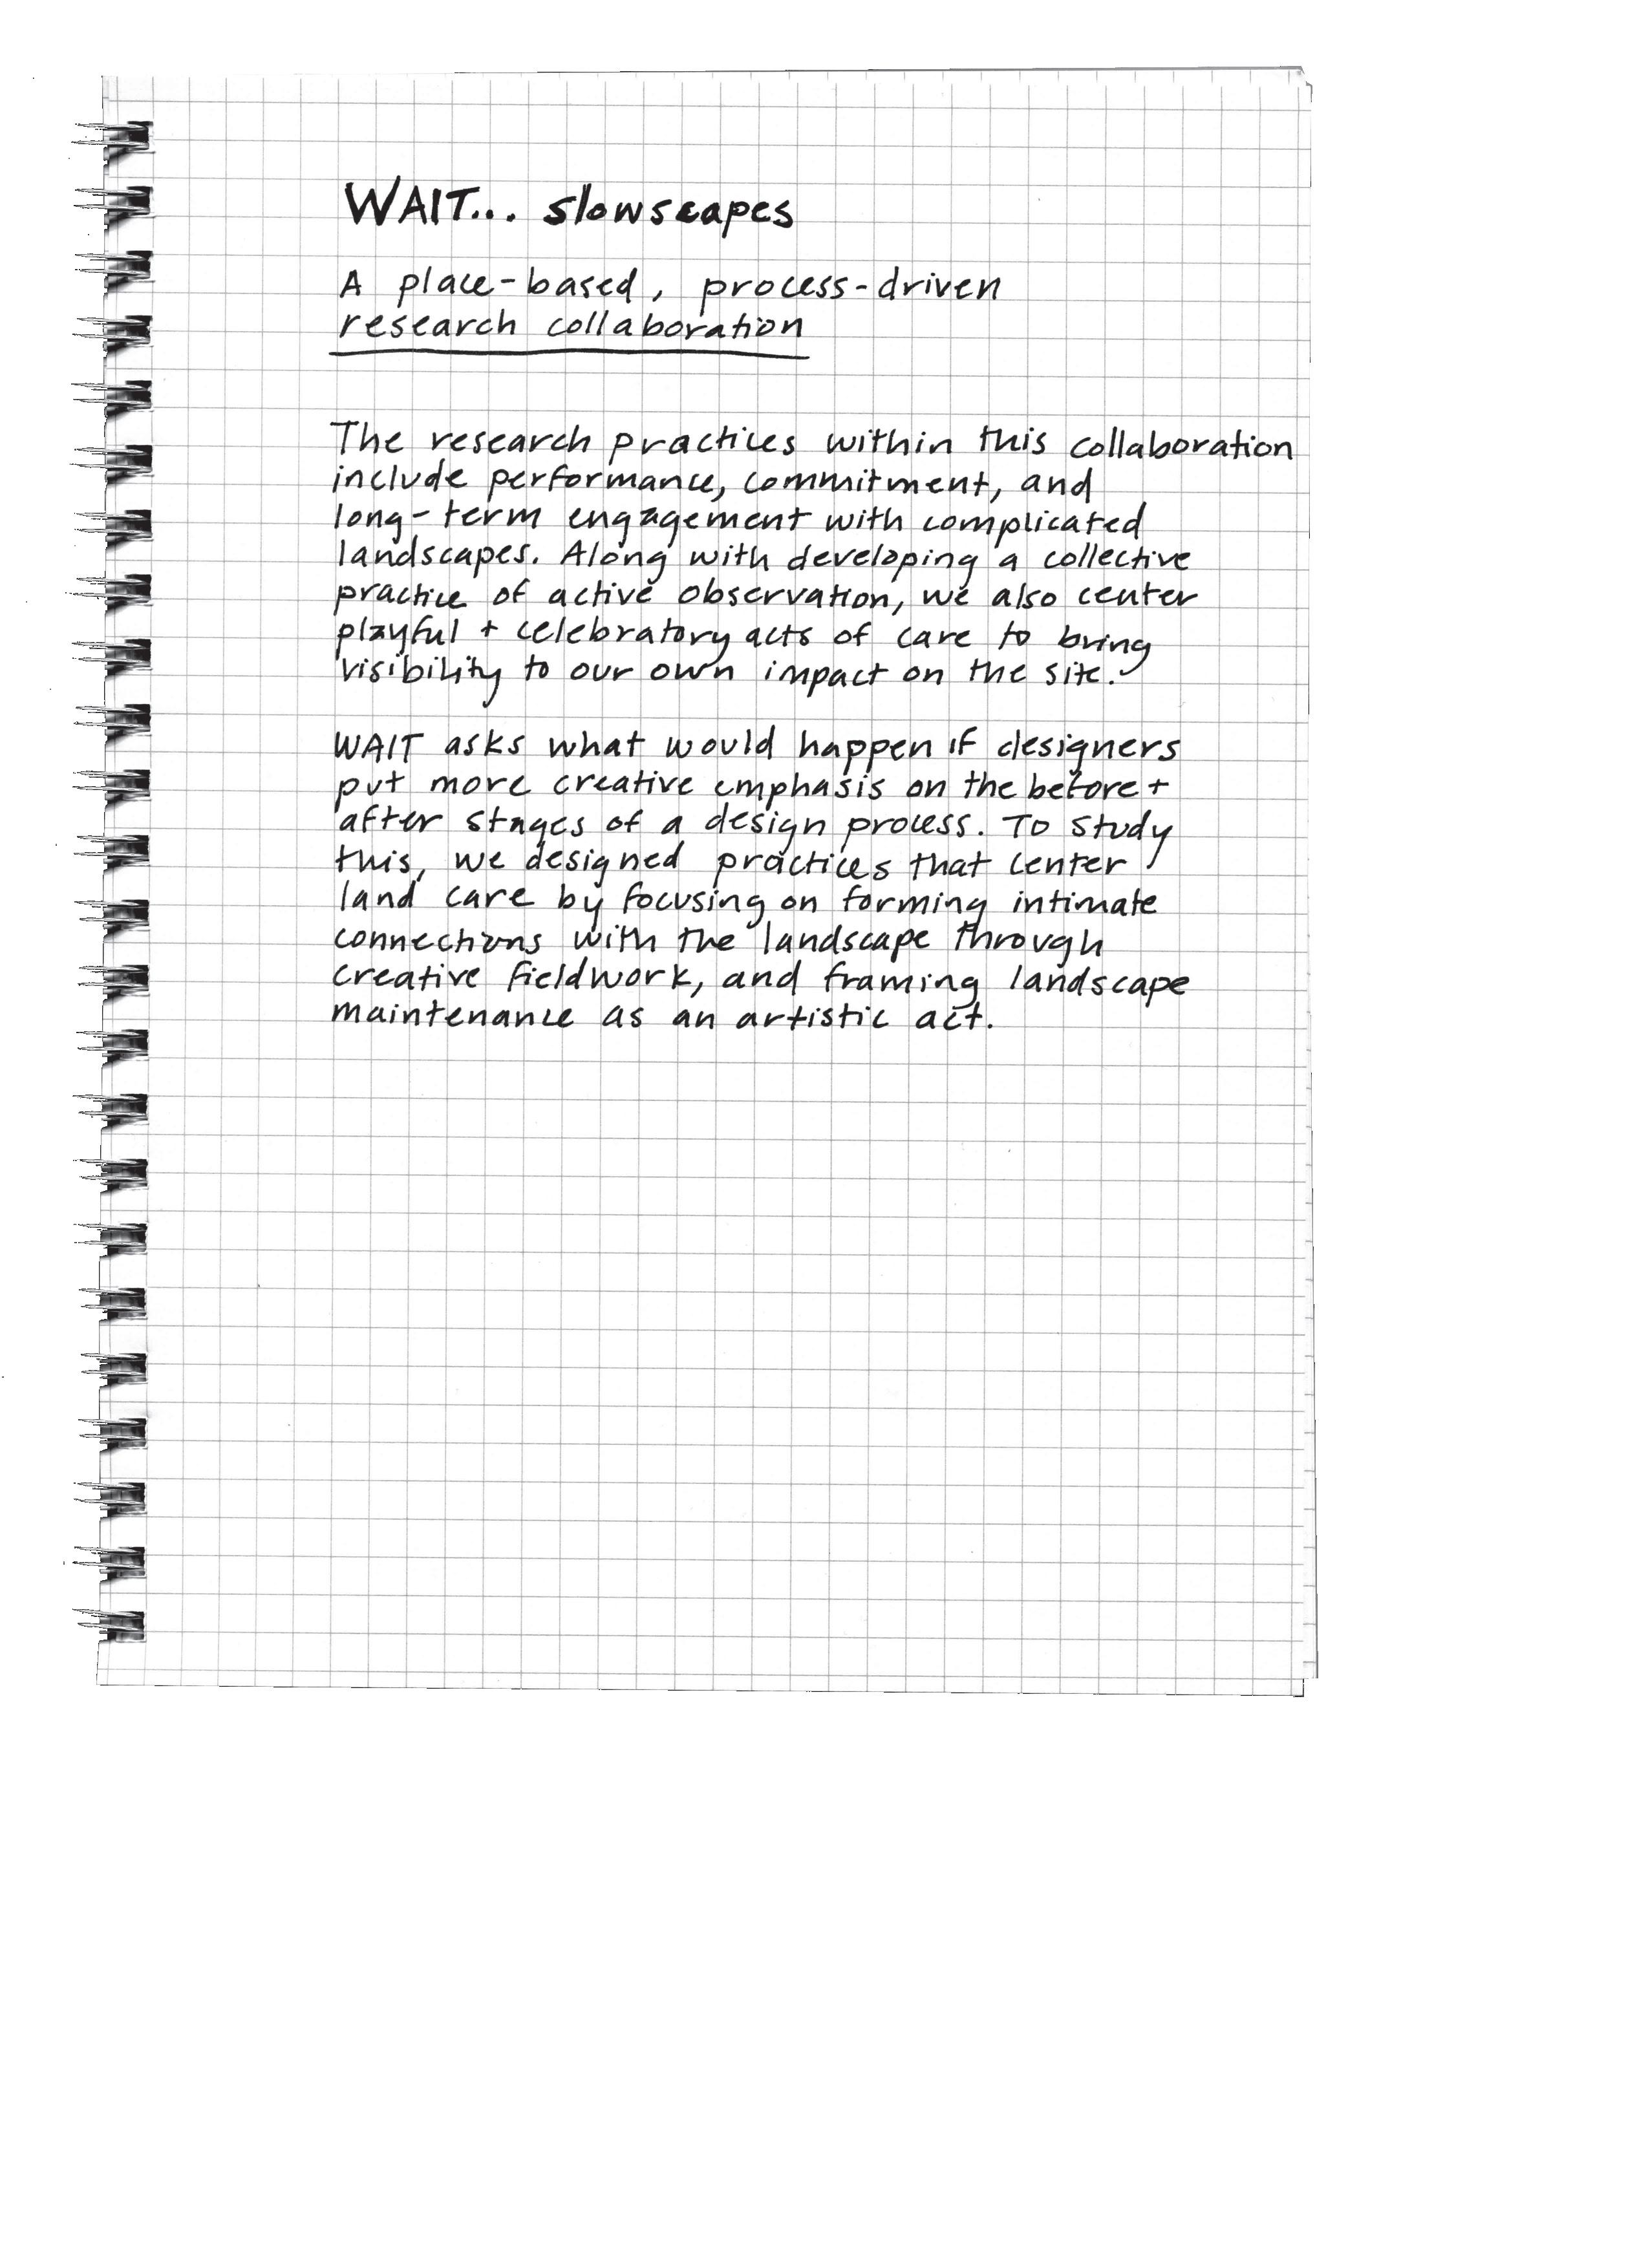 WAIT... slowscapes
A place-based, process-driven
research collaboration
The research practices within this collaboration
include performance, commitment, and
long-term engagement with complicated
landscapes. Along with developing a collective
practice of active observation, we also center
playful + celebratory acts of care to bring
visibility to our own impact on the site.
WAIT asks what would happen if designers
put more creative emphasis on the before +
after stages of a design process. To study
this, we designed practices that center
land care by focusing on forming intimate
connections with the landscape through
creative fieldwork, and framing landscape
maintenance as an artistic act.